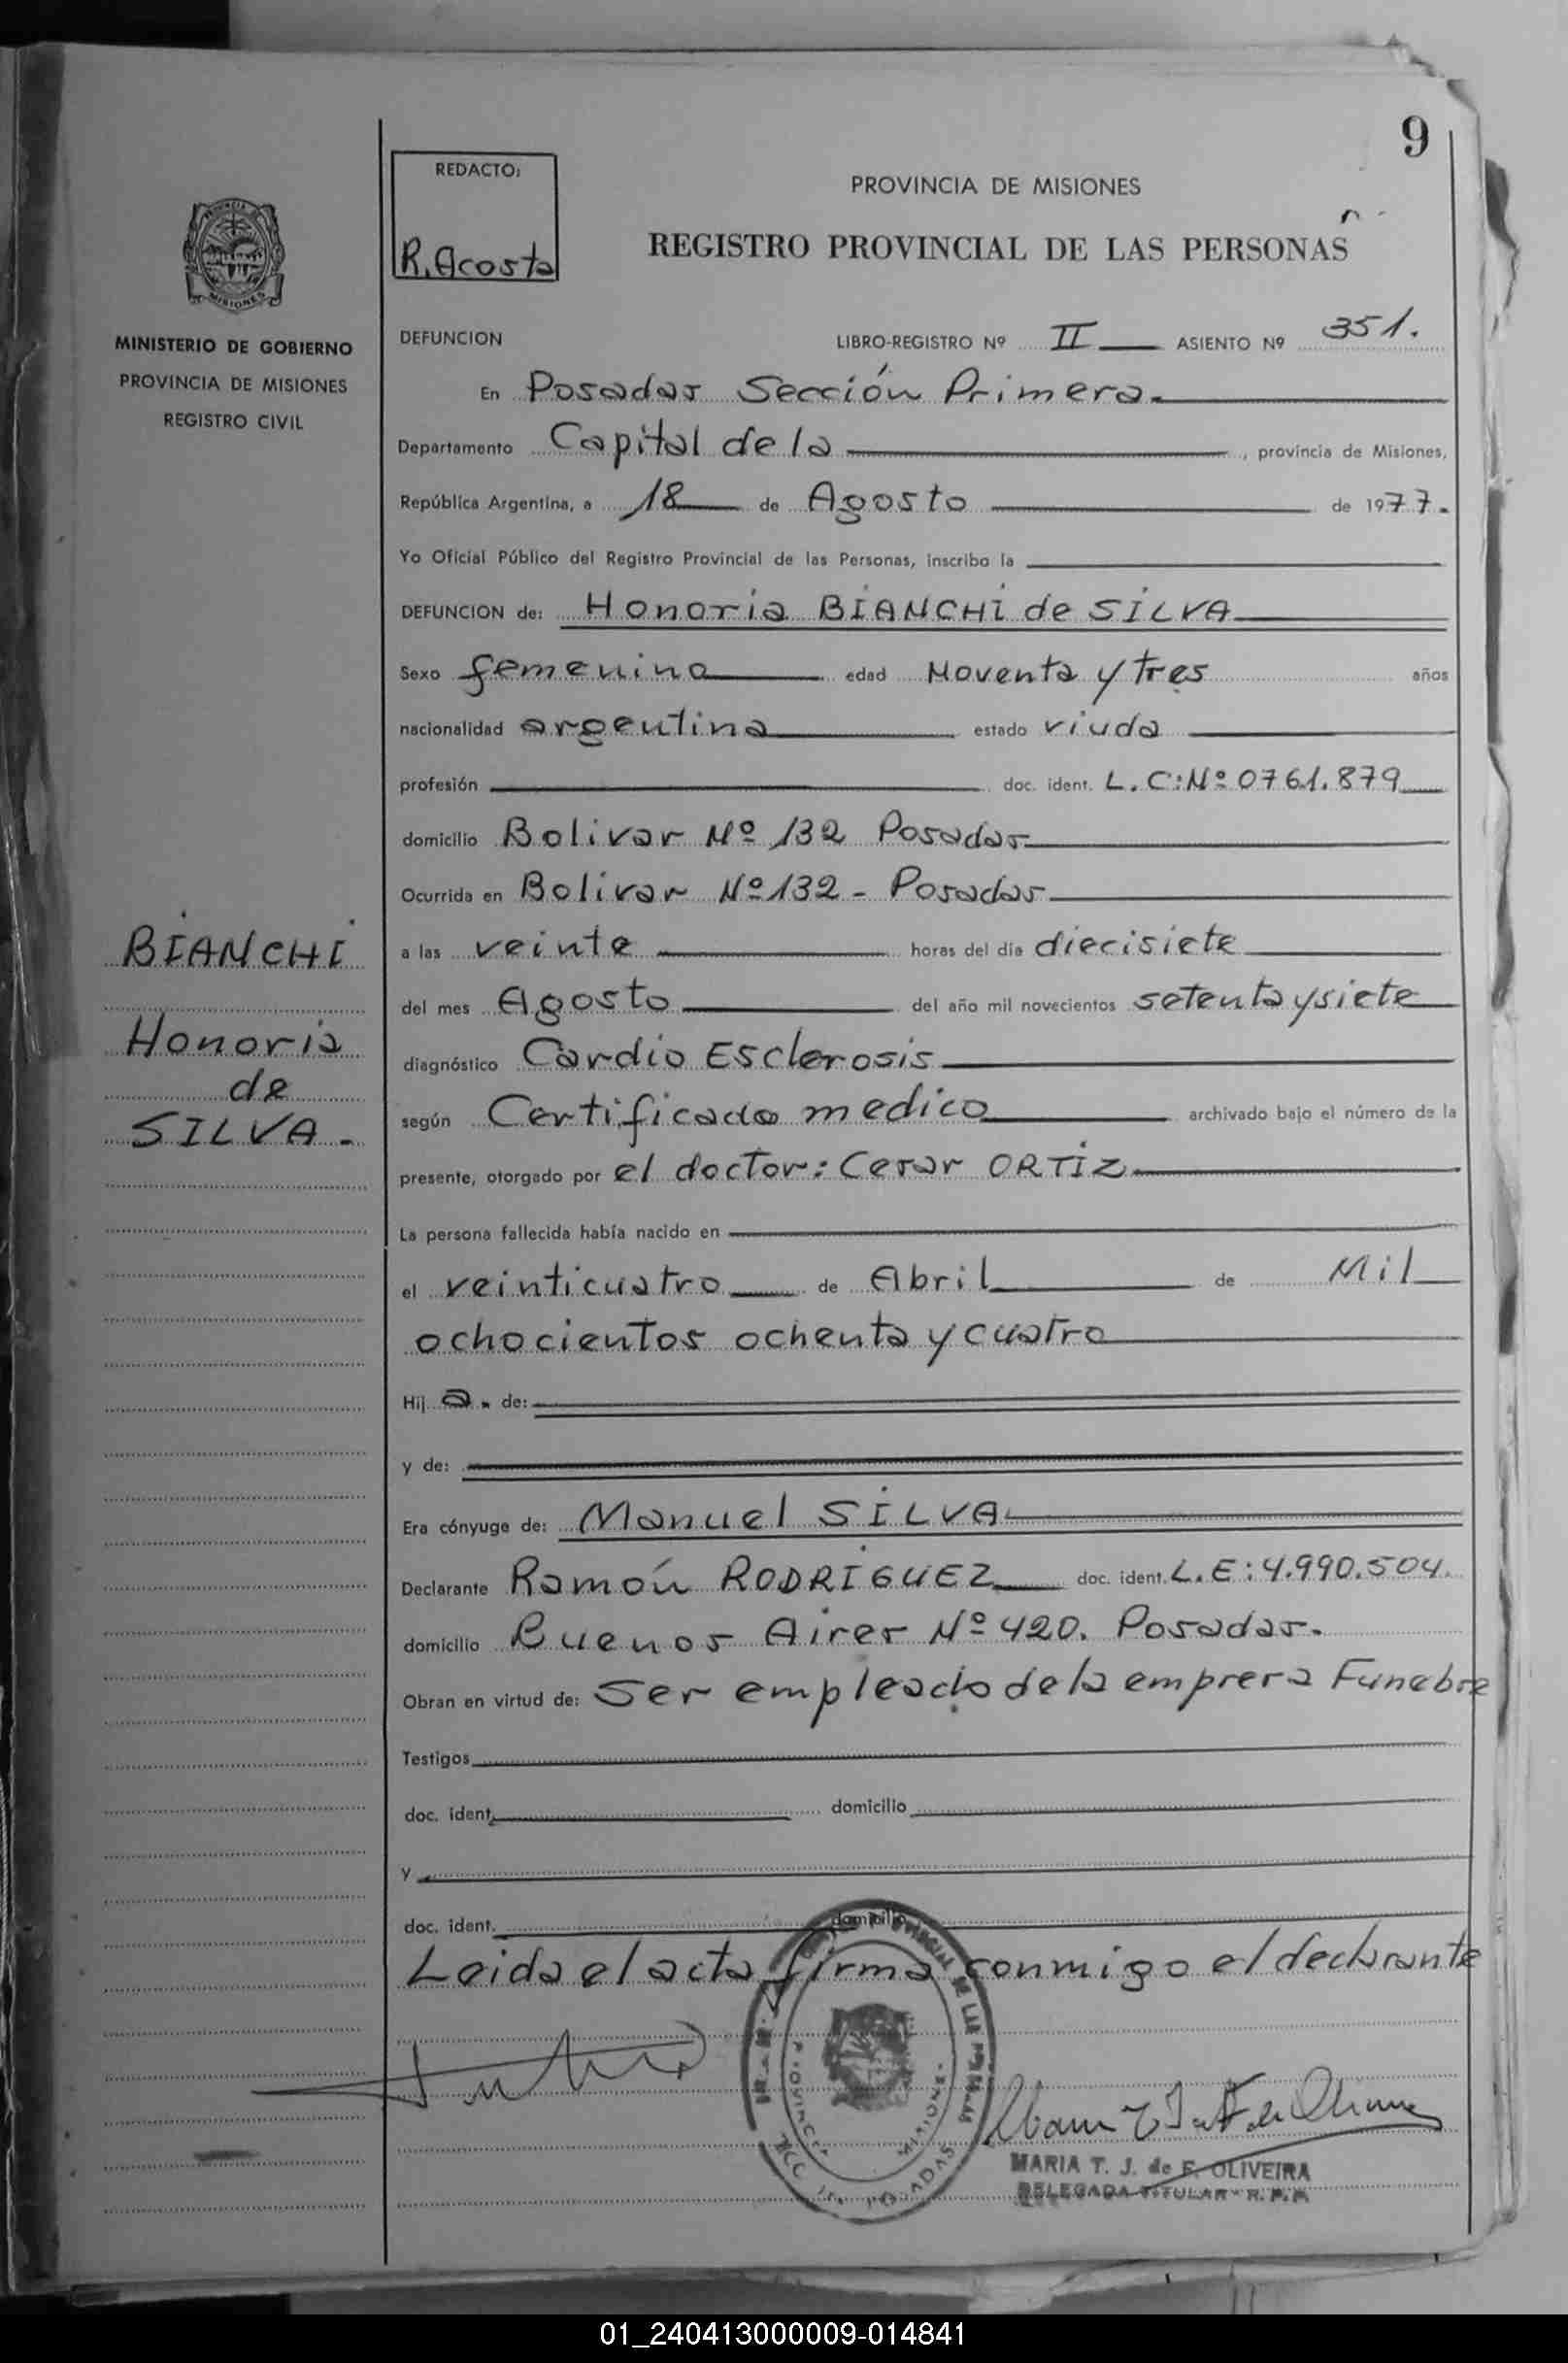 9
REDACTO:
R. Acosta
PROVINCIA DE MISIONES
REGISTRO PROVINCIAL DE LAS PERSONAS
MINISTERIO DE GOBIERNO
PROVINCIA DE MISIONES
REGISTRO CIVIL
DEFUNCION LIBRO-REGISTRO Nº II ASIENTO Nº 351.
En Posadas Sección Primera.
Departamento Capital de la , provincia de Misiones,
República Argentina, a 18 de Agosto de 1977.
Yo Oficial Público del Registro Provincial de las Personas, inscribo la
DEFUNCION de: Honoria BIANCHI de SILVA
Sexo femenino edad Noventa y tres años
nacionalidad argentina estado viuda
profesión doc. ident. L.C:Nº 0761.879
domicilio Bolivar Nº 132 Posadas
Ocurrida en Bolivar Nº 132 - Posadas
BIANCHI
Honoria
de
SILVA.
a las veinte horas del día diecisiete
del mes Agosto del año mil novecientos setenta y siete
diagnóstico Cardio Esclerosis
según Certificado medico archivado bajo el número de la
presente, otorgado por el doctor: Cesar ORTIZ
La persona fallecida había nacido en
el veinticuatro de Abril de Mil
ochocientos ochenta y cuatro
Hij a. de:
y de:
Era cónyuge de: Manuel SILVA
Declarante Ramón RODRIGUEZ doc. ident. L.E: 4.990.504.
domicilio Buenos Aires Nº 420. Posadas.
Obran en virtud de: Ser empleado de la empresa Funebre
Testigos
doc. ident. domicilio
y
doc. ident. domicilio
Leida el acta firma conmigo el declarante
PROVINCIA MISIONES
POSADAS
MARIA T. J. de F. OLIVEIRA
DELEGADA TITULAR - R. P. P.
01_240413000009-014841